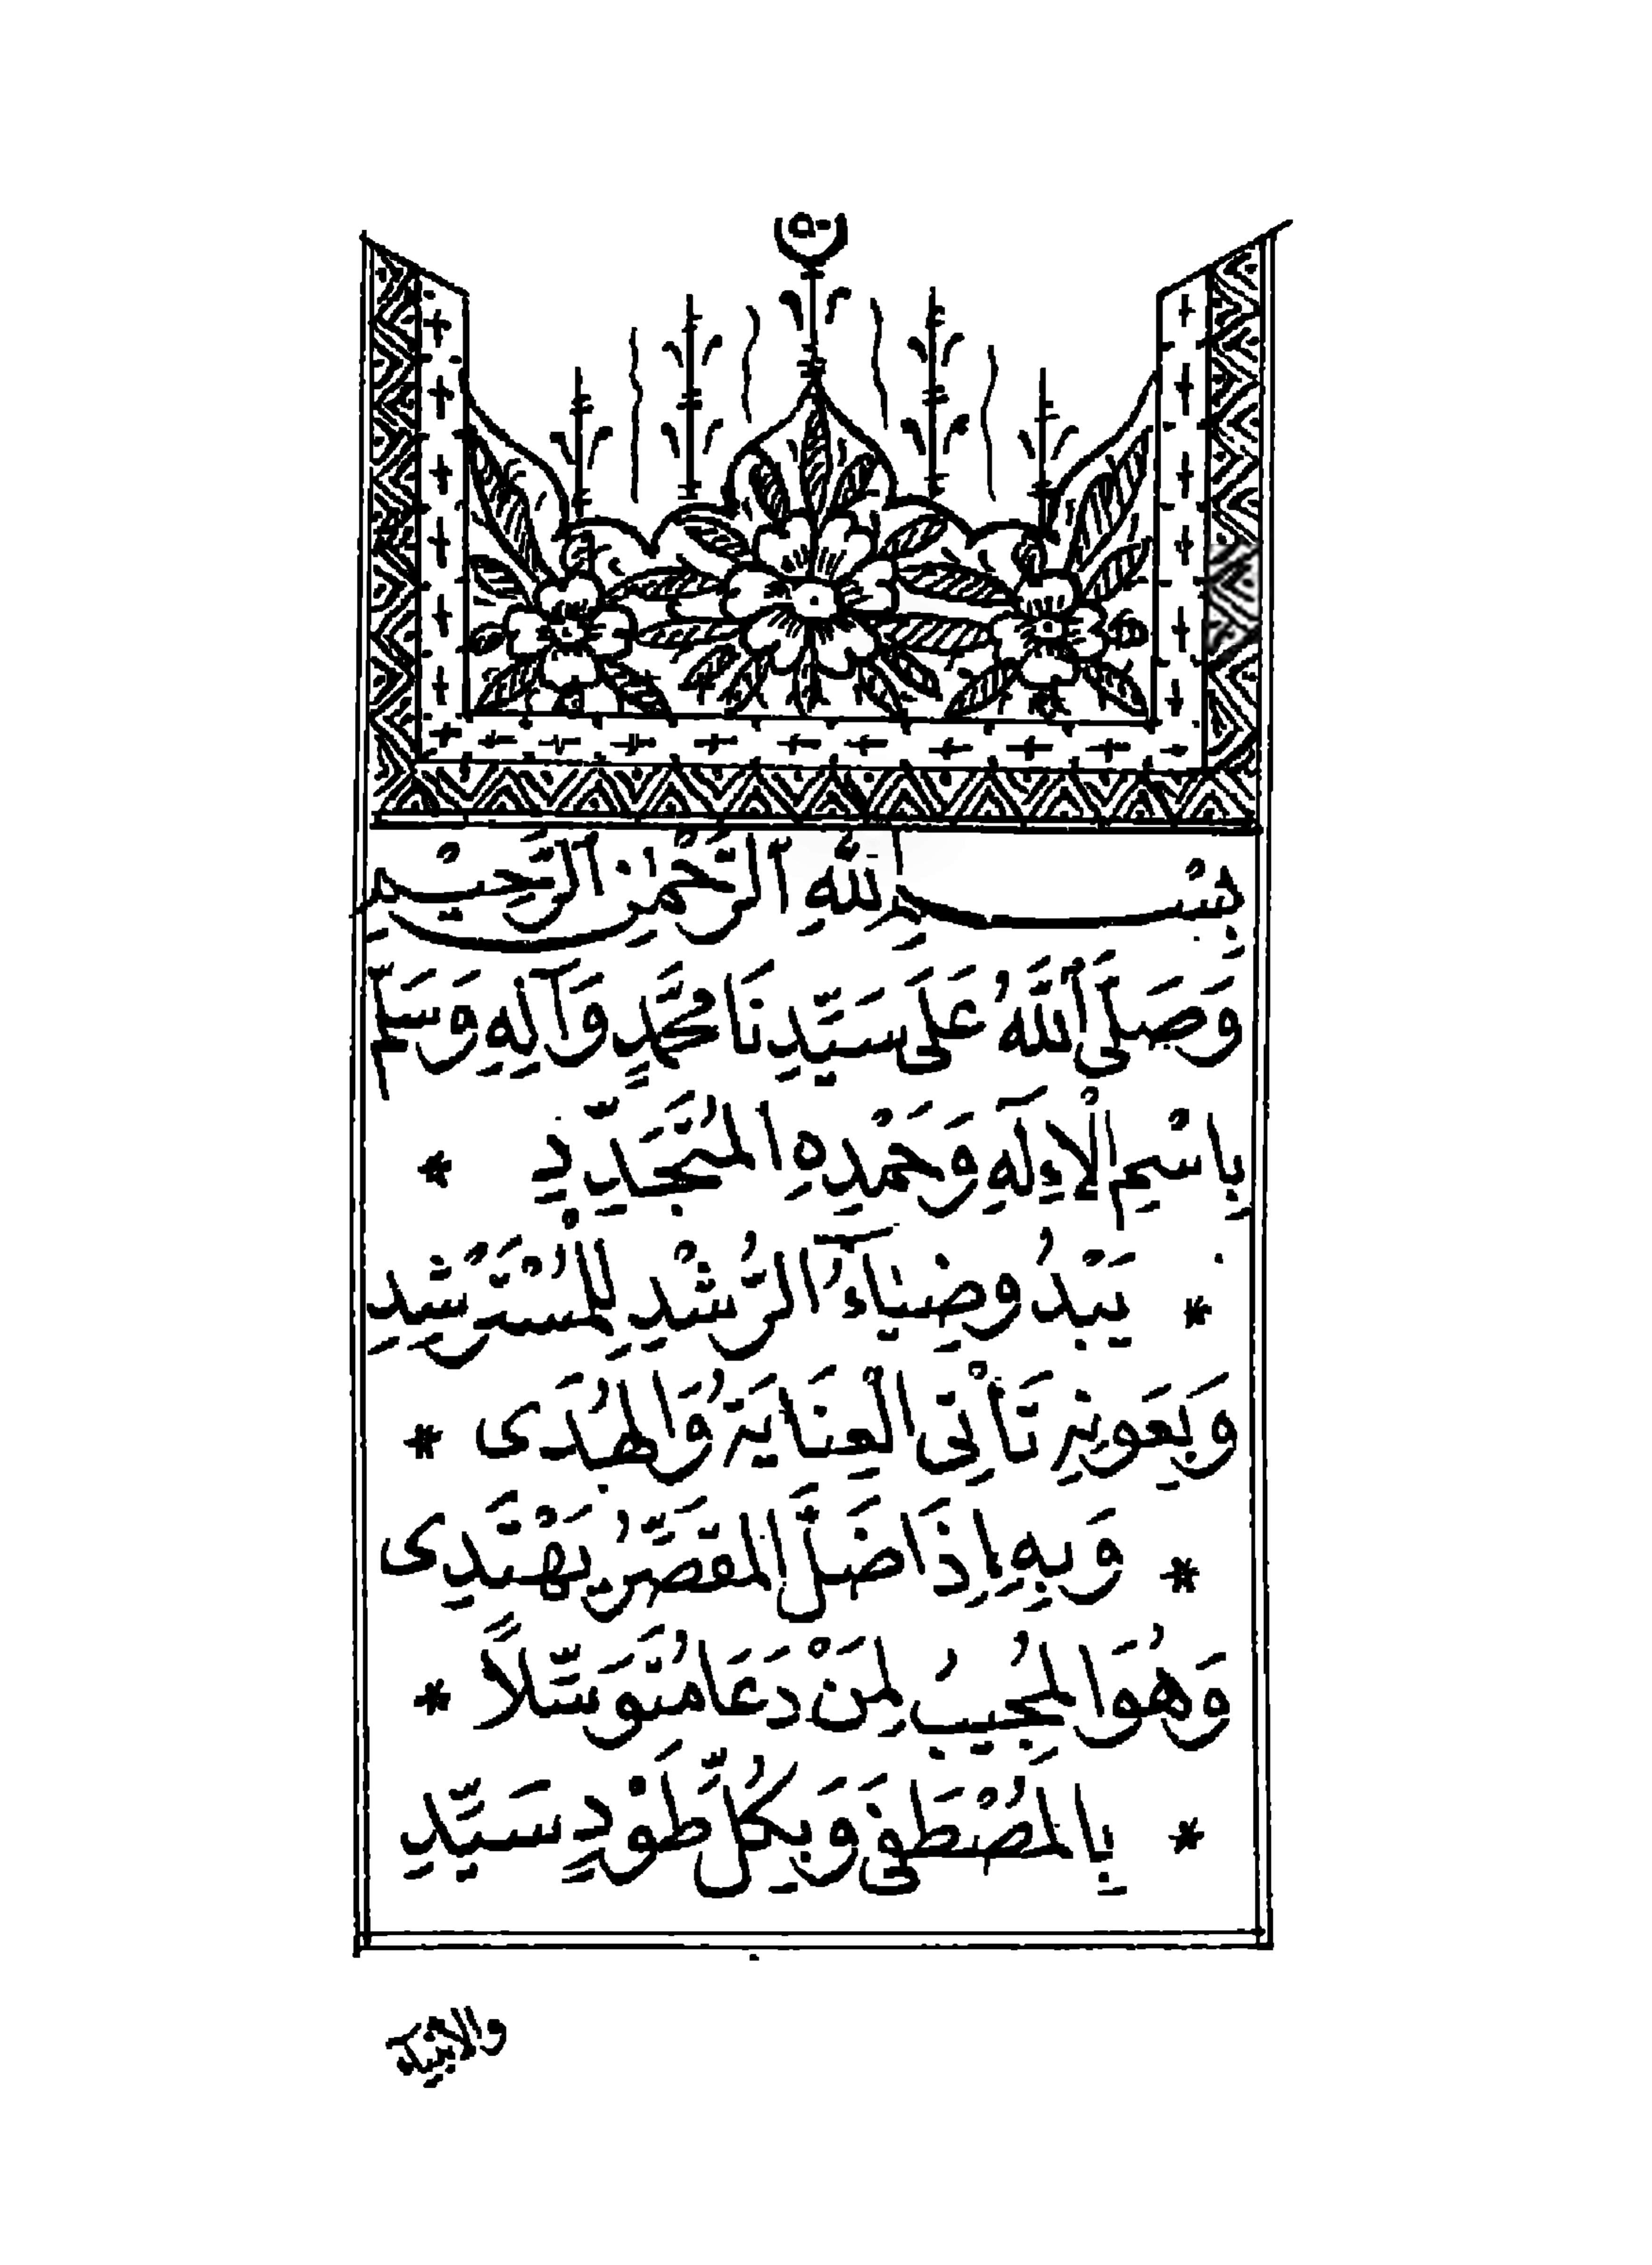 بِسْمِ اللهِ الرَّحْمٰنِ الرَّحِيْمِ
وَصَلَّى اللَّهُ عَلَى سَيِّدِنَا مُحَمَّدٍ وَآلِهِ وَسَلَّمَ
بِاسْمِ الْإِلَهِ وَحَمْدِهِ الْمُتَجَدِّدِ *
* يَبْدُو ضِيَاءُ الرُّشْدِ لِلْمُسْتَرْشِدِ
وَبِعَوْنِهِ تَأْتِى الْعِنَايَةُ وَالْهُدَى *
* وَبِهِ إِذَا ضَلَّ الْمُقَصِّرُ يَهْتَدِى
وَهُوَ الْمُجِيبُ لِمَنْ دَعَا مُتَوَسِّلًا *
* بِالْمُصْطَفَى وَبِكُلِّ طَوْدٍ سَيِّدِ